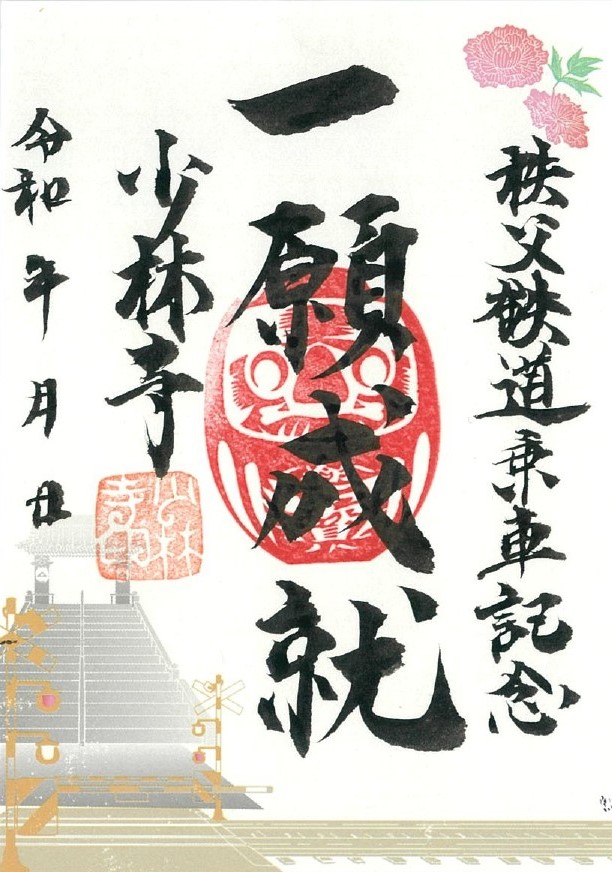 秩父鉄道乗車記念
一願成就
少林寺
少林寺印
令和 年 月 日